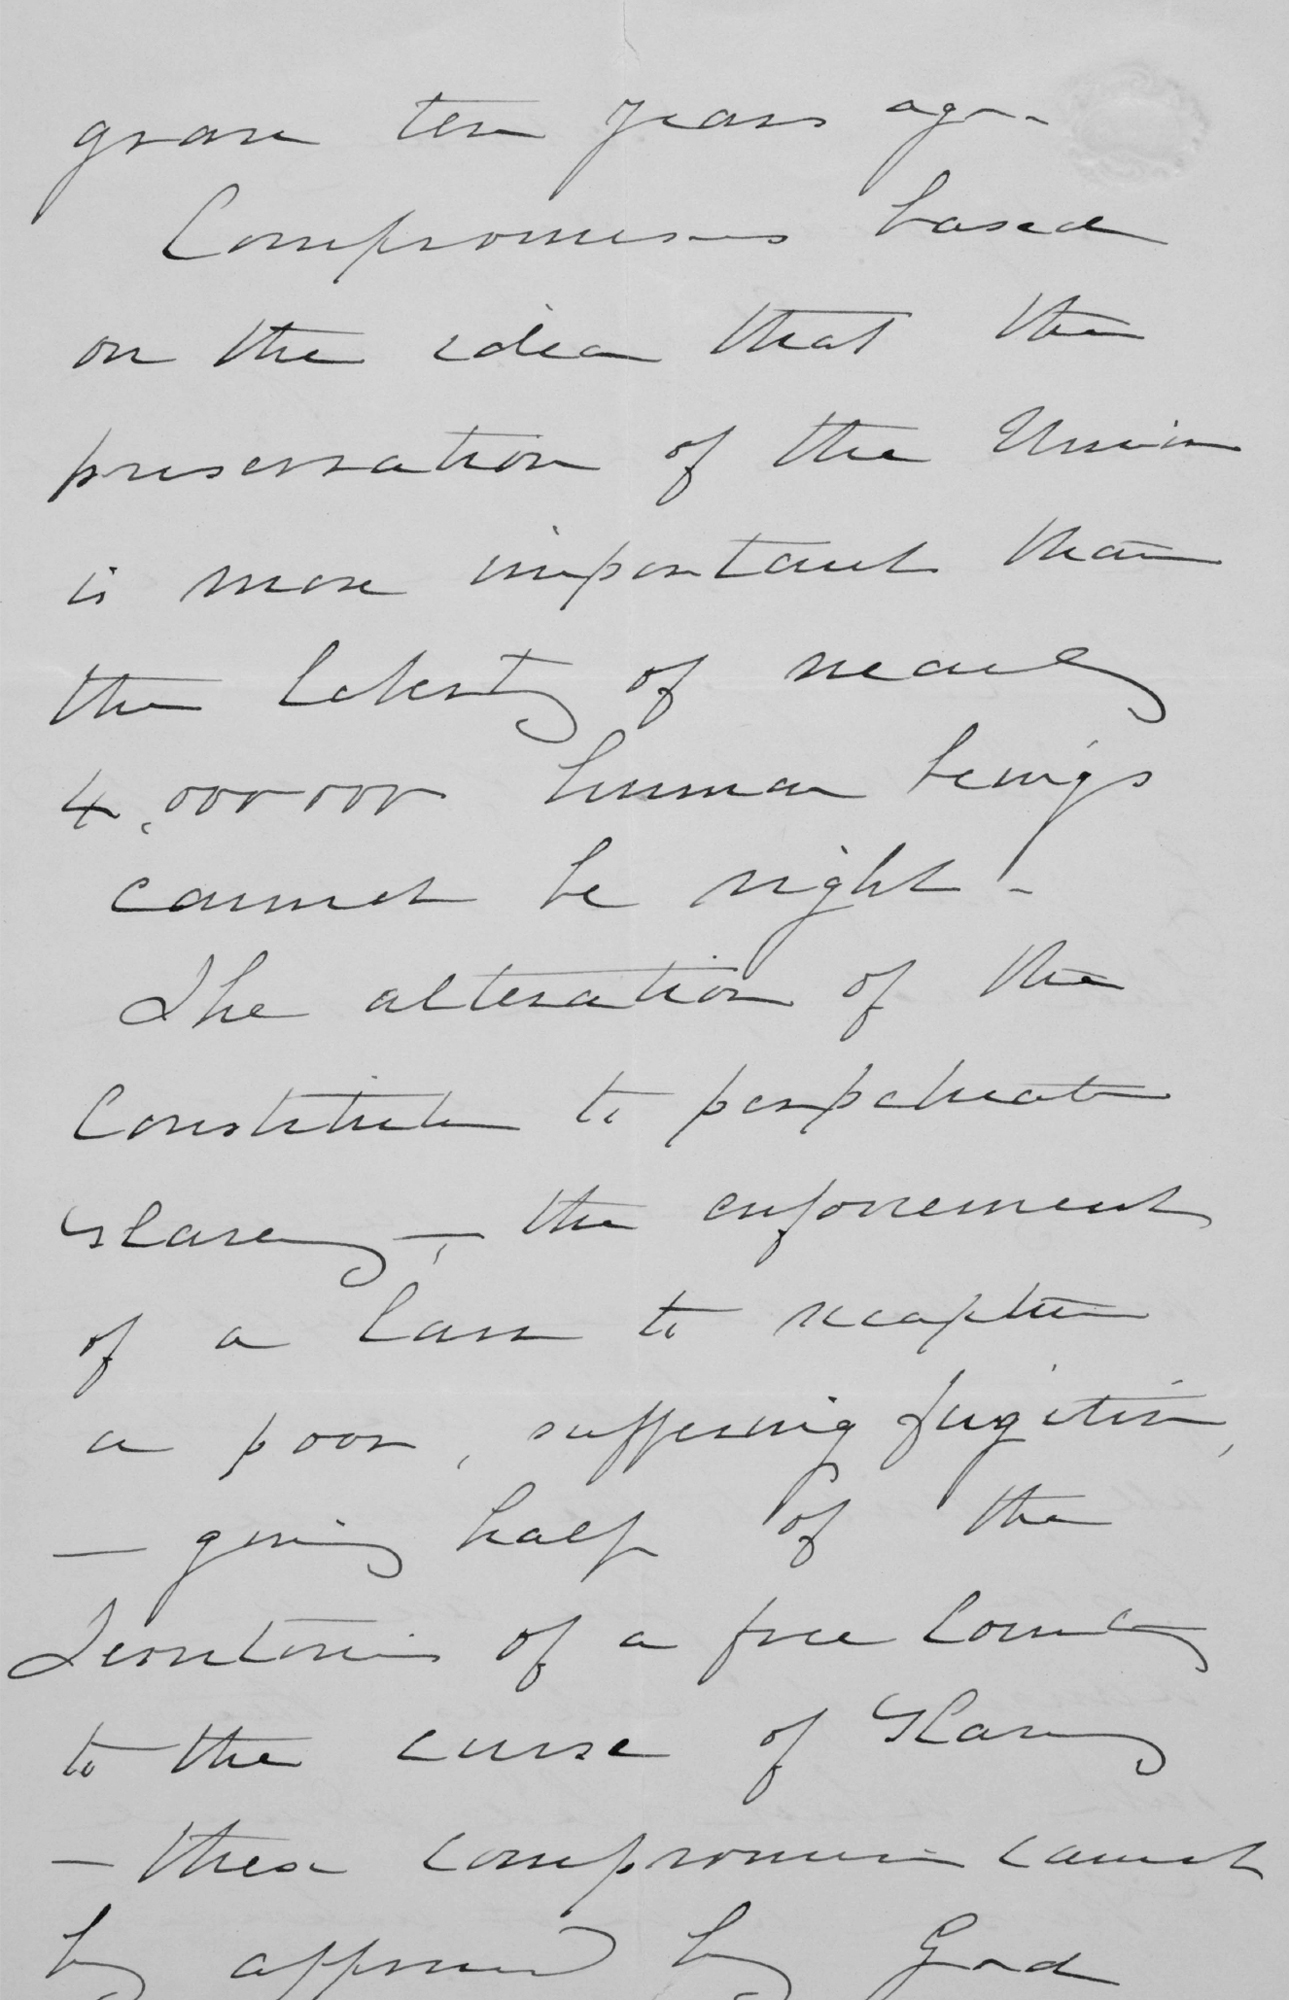 grave ten years ago.
Compromises based
on the idea that the
preservation of the Union
is more important than
the liberty of nearly
4,000 000 human beings
cannot be right -
The alteration of the
Constitution to perpetuate
Slavery -, the enforcement
of a Law to recapture
a poor, suffering fugitive,
- giving half of the
Territories of a free Country
to the curse of Slavery
- these compromises cannot
be approved by God